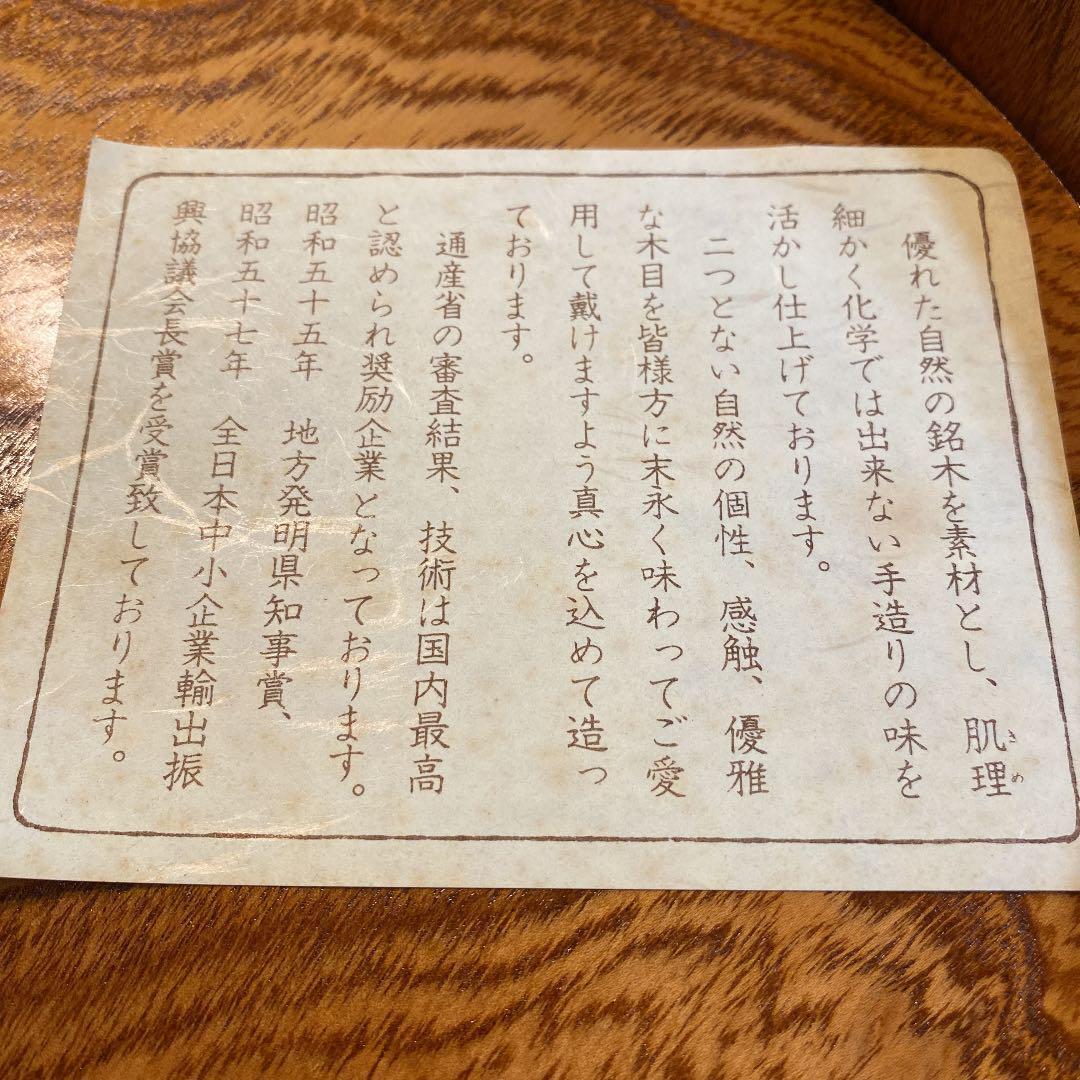 優れた自然の銘木を素材とし、肌理
きめ
細かく化学では出来ない手造りの味を
活かし仕上げております。
二つとない自然の個性、感触、優雅
な木目を皆様方に末永く味わってご愛
用して戴けますよう真心を込めて造っ
ております。
通産省の審査結果、技術は国内最高
と認められ奨励企業となっております。
昭和五十五年 地方発明県知事賞、
昭和五十七年 全日本中小企業輸出振
興協議会長賞を受賞致しております。